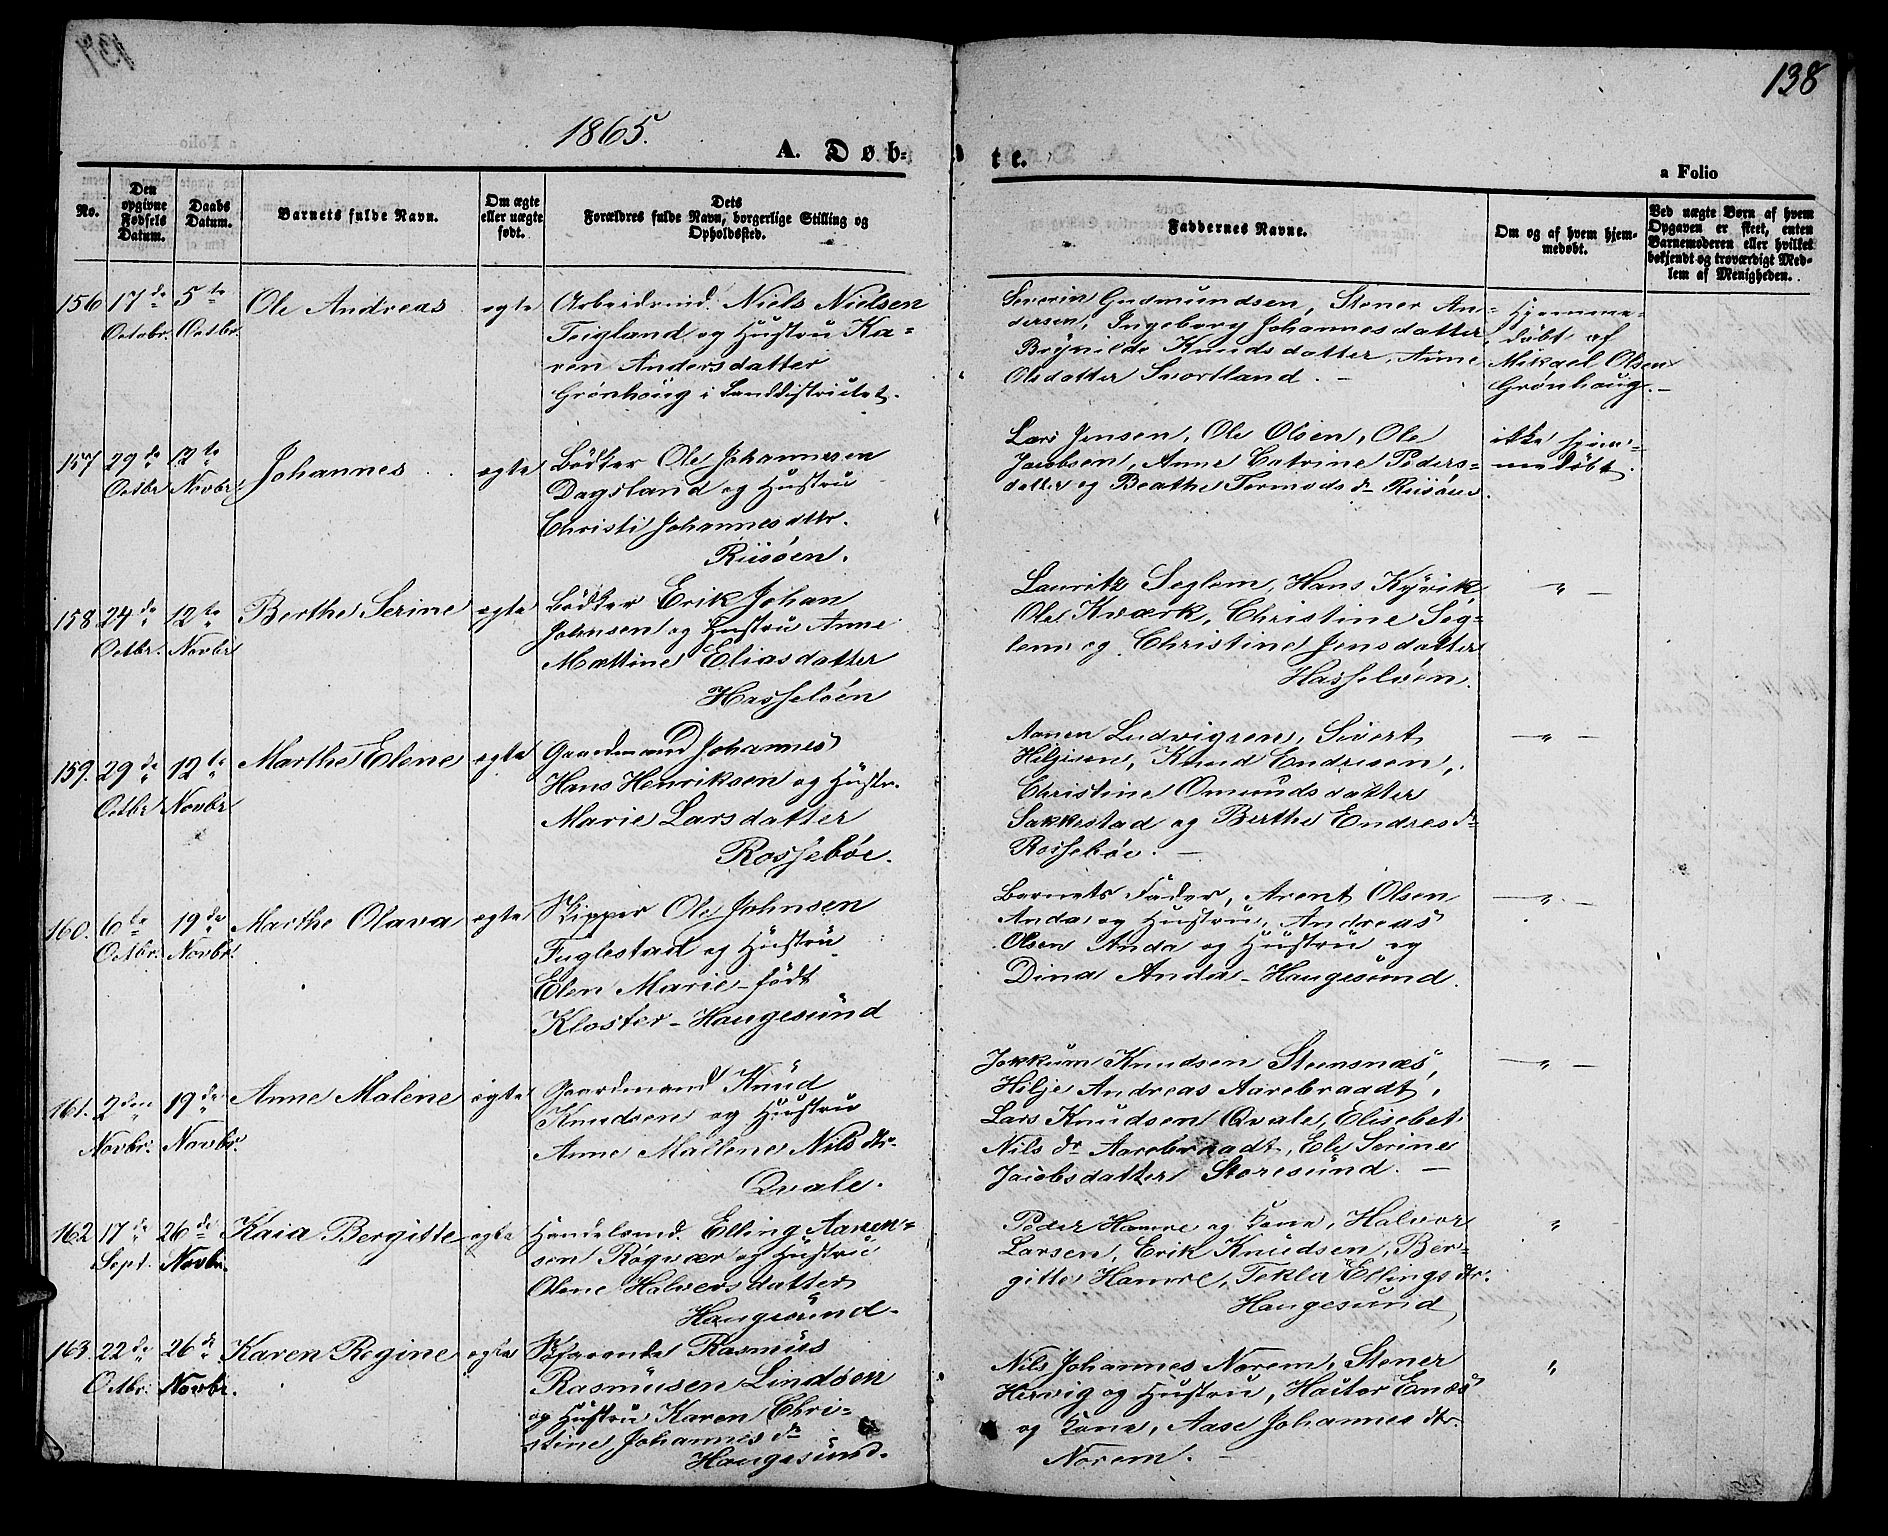 138
1865.
A. Døb-
te.
a Folio
No.
Den opgivne Fødsels Datum.
Daabs Datum.
Barnets fulde Navn.
Om ægte eller uægte født.
Dets Forældres fulde Navn, borgerlige Stilling og Opholdssted.
Faddernes Navne.
Om og af hvem hjemmedøbt.
Ved uægte Børn af hvem Opgaven er skeet, enten Barnemoderen eller hvilket bekjendt og troværdigt Medlem af Menigheden.
156 17de Octobr. 5te Octbr. Ole Andreas ægte
Arbeidsmd. Niels Nielsen
Teigland og Hustru Ka-
ren Andersdatter
Grønhoug i Landdistrictet.
Severin Gudmundsen, Stener An-
dersen, Ingeborg Johannesdatter
Brynilde Knudsdatter, Anne
Olsdatter Snortland. —
Hjemme-
døbt af
Mikael Olsen
Grønhaug. —
157 29de Octbr. 12te Novbr. Johannes ægte
Bødker Ole Johannesen
Dagsland og Hustru
Christi Johannesdttr.
Riisøen.
Lars Jensen, Ole Olsen, Ole
Jacobsen, Anne Catrine Peders-
datter og Beathe Tormods dr Riisøen.
ikke hjem-
medøbt.
158 24de Octbr. 12te Novbr. Berthe Serine ægte
Bødker Erik Johan
Johnsen og Hustru Anne
Mættine Eliasdatter
Hasseløen
Lauritz Seglem, Hans Kyvik,
Ole Kværk, Christine Seg-
lem og Christine Jensdatter
Hasseløen.
" —
159. 29de Octbr 12te Novbr Marthe Elene ægte
Gaardmand Johannes
Hans Henriksen og Hustr.
Marie Larsdatter
Rossebøe.
Aanen Ludvigsen, Sivert
Hiljesen, Knud Endresen,
Christine Omundsdatter
Sakkestad og Berthe Endresdr
Rossebøe. —
— " —
160. 6te Octbr. 19de Novbr. Marthe Olava ægte
Skipper Ole Johnsen
Fuglestad og Hustru
Elen Marie - født
Kloster - Haugesund
Barnets Fader, Arent Olsen
Anda og Hustru, Andreas
Olsen Anda og Hustru og
Dina Anda - Haugesund.
— " —
161. 2den Novbr. 19de Novbr. Anne Malene ægte
Gaardmand Knud
Knudsen og Hustru
Anne Mallene Nilsdtr.
Qvale.
Jokkum Knudsen Stensnæs,
Hilje Andreas Aarebraadt,
Lars Knudsen Qvale, Elisebet
Nils dr Aarebraadt, Eli Serine
Jacobsdatter Storesund. —
— " —
162 17de Sept. 26de Novbr. Kaia Bergitte ægte
Handelsmd. Elling Aanen-
sen Røgvær og Hustru
Olene Halvorsdatter
Haugesund -
Peder Hamre og Kone, Halvor
Larsen, Erik Knudsen, Ber-
gitte Hamre, Tekla Ellingsdtr.
Haugesund
"
163. 22de Octbr. 26de Novbr. Karen Regine ægte
Søfarende Rasmus
Rasmusen Lindøen
og Hustru Karen Chri-
stine Johannesdr
Haugesund.
Nils Johannes Norem, Stener
Hervig og Hustru, Haktor Enæs
og Kone, Aase Johannesdtr.
Norem. —
"